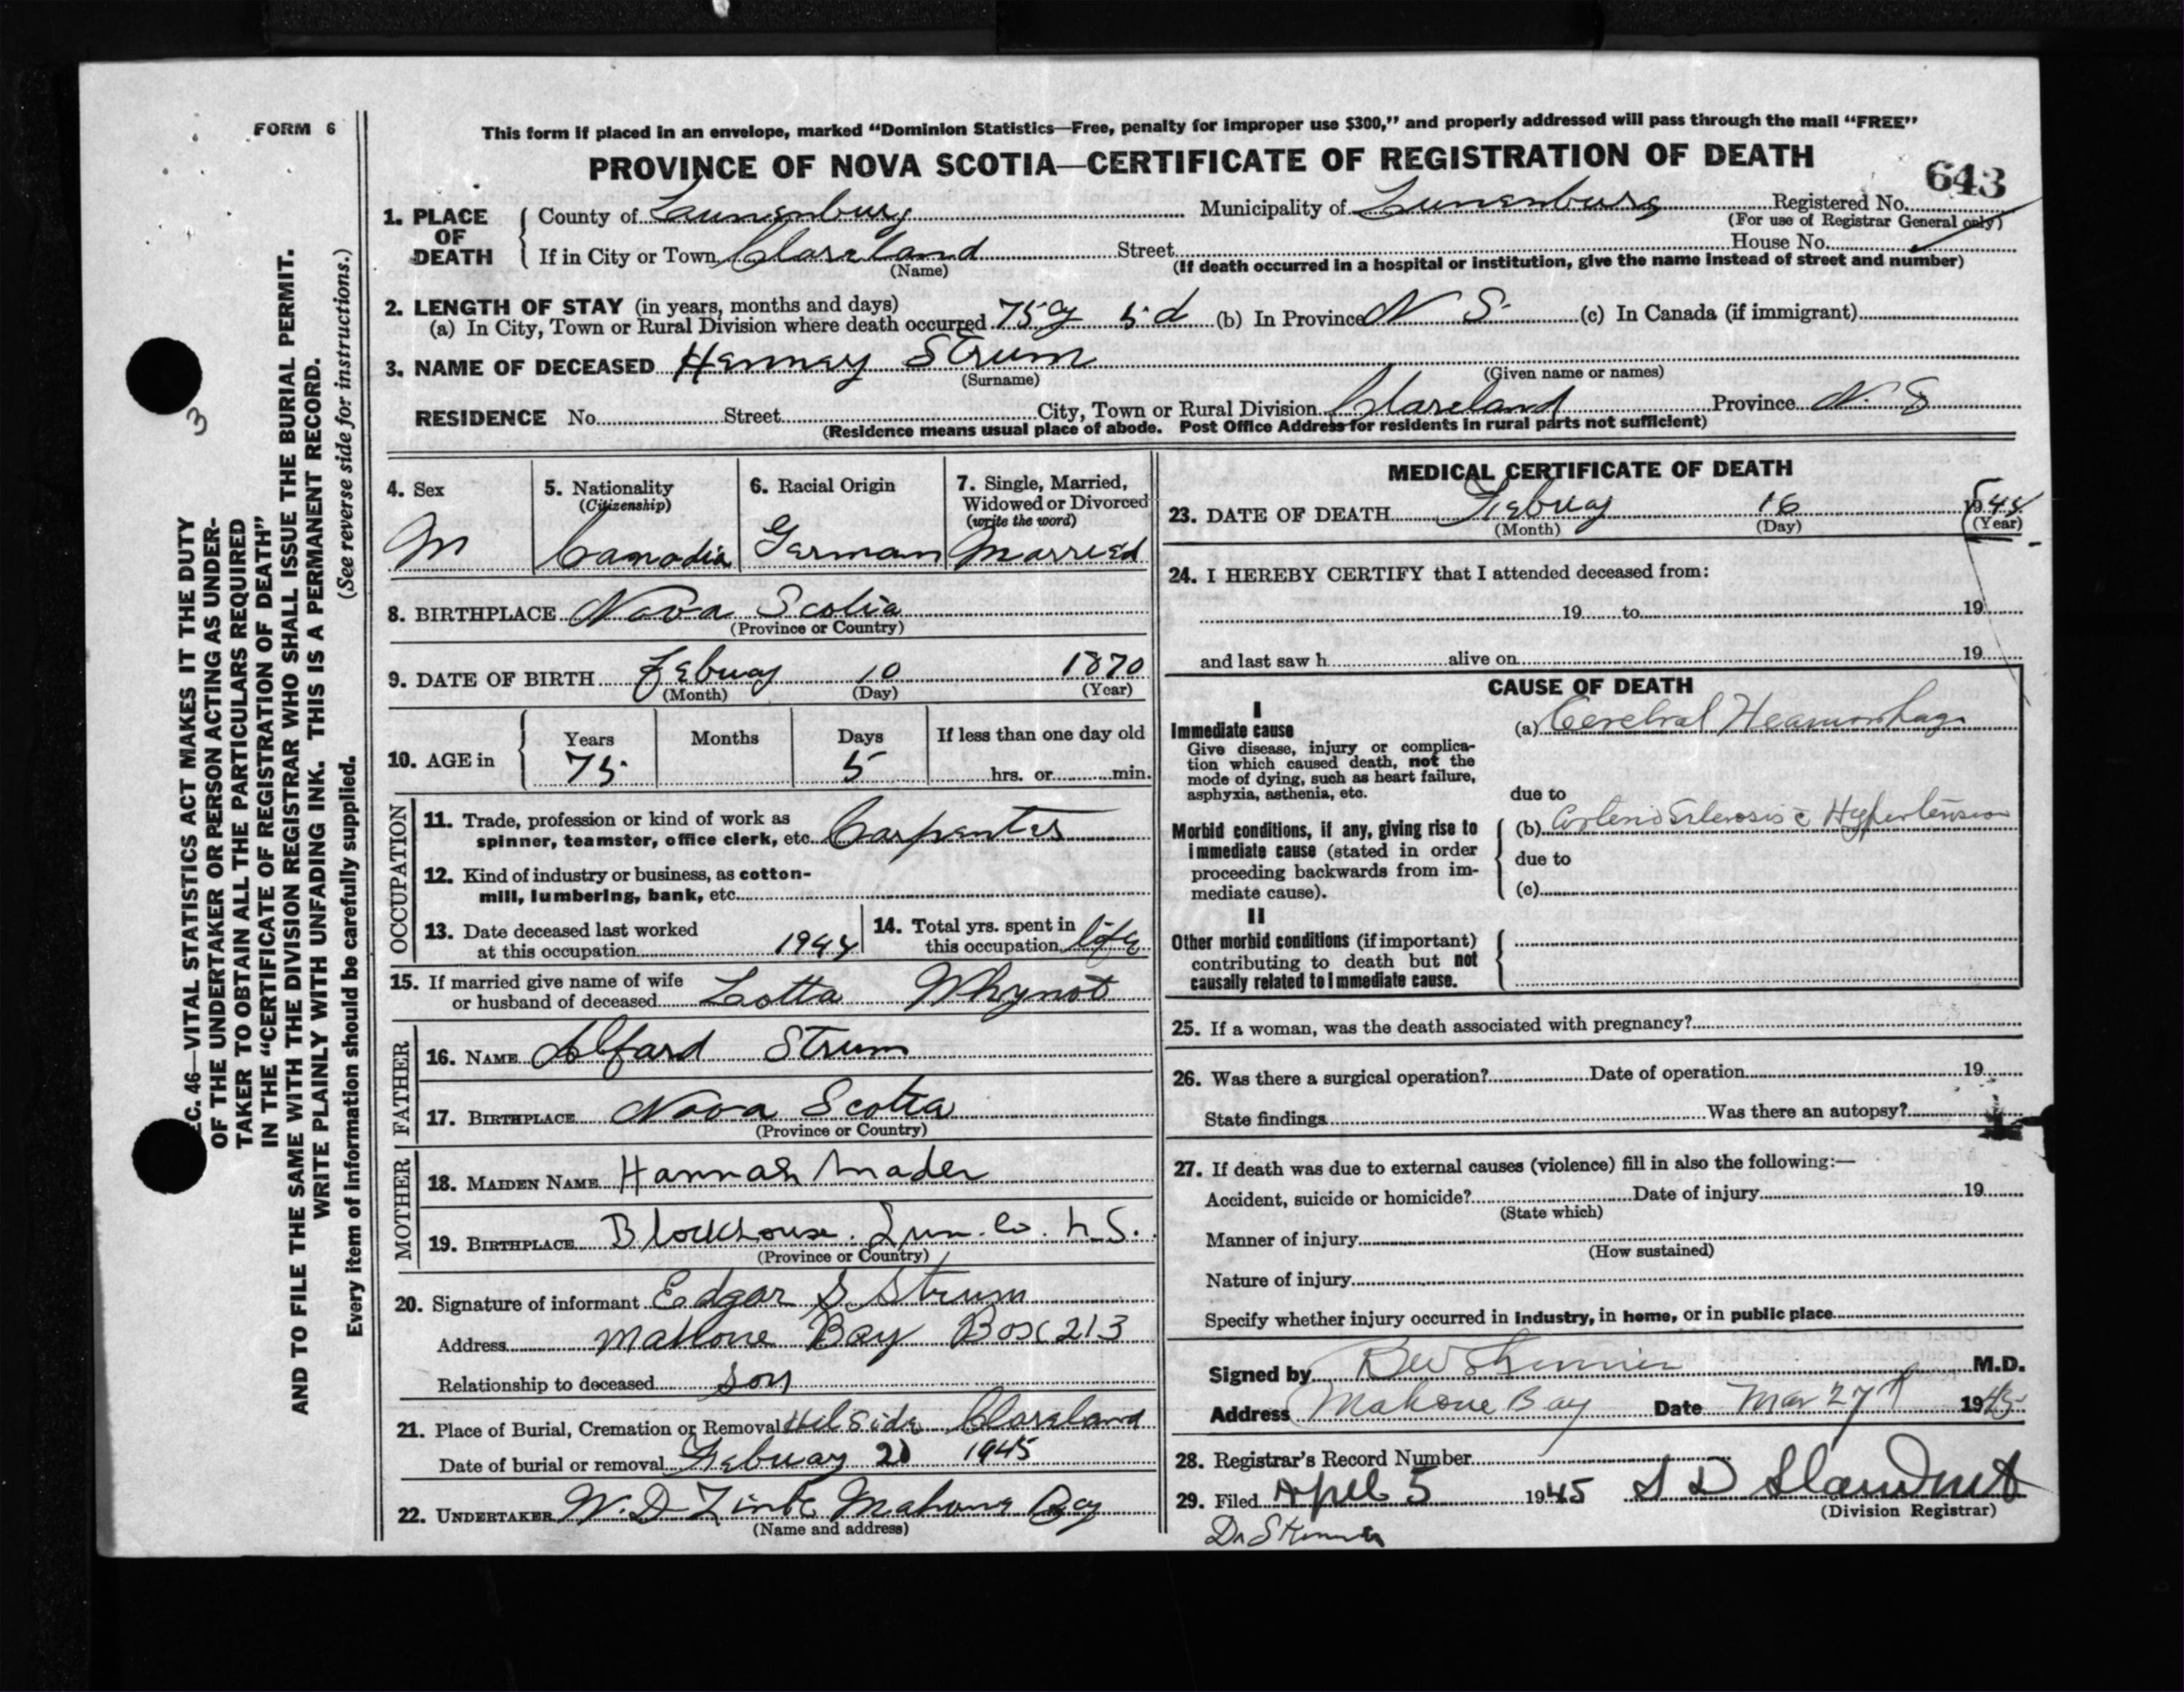 FORM 6
This form if placed in an envelope, marked “Dominion Statistics—Free, penalty for improper use $300,” and properly addressed will pass through the mail “FREE”
PROVINCE OF NOVA SCOTIA—CERTIFICATE OF REGISTRATION OF DEATH
643
1. PLACE OF DEATH
County of Lunenburg Municipality of Lunenburg Registered No.
(For use of Registrar General only)
If in City or Town Clareland Street House No.
(Name) (If death occurred in a hospital or institution, give the name instead of street and number)
2. LENGTH OF STAY (in years, months and days)
(a) In City, Town or Rural Division where death occurred 75 y 5 d (b) In Province N S. (c) In Canada (if immigrant)
3. NAME OF DECEASED Strum
(Surname) (Given name or names)
RESIDENCE No. Street City, Town or Rural Division Clareland Province N. S
(Residence means usual place of abode. Post Office Address for residents in rural parts not sufficient)
4. Sex
M
5. Nationality
(Citizenship)
Canadia
6. Racial Origin
German
7. Single, Married,
Widowed or Divorced
(write the word)
Married
8. BIRTHPLACE Nova Scotia
(Province or Country)
9. DATE OF BIRTH Febuay 10 1870
(Month) (Day) (Year)
10. AGE in
Years Months Days If less than one day old
75 5 hrs. or min.
OCCUPATION
11. Trade, profession or kind of work as
spinner, teamster, office clerk, etc. Carpenter
12. Kind of industry or business, as cotton-
mill, lumbering, bank, etc.
13. Date deceased last worked
at this occupation 1944
14. Total yrs. spent in
this occupation life
15. If married give name of wife
or husband of deceased Lotta Whynot
FATHER
16. NAME Alfard Strum
17. BIRTHPLACE Nova Scotia
(Province or Country)
MOTHER
18. MAIDEN NAME Hannah Mader
19. BIRTHPLACE Blockhouse. Lun. Co. N.S.
(Province or Country)
20. Signature of informant Edgar S Strum
Address Mahone Bay Box 213
Relationship to deceased Son
21. Place of Burial, Cremation or Removal Hil Side Clareland
Date of burial or removal Febuay 20 1945
22. UNDERTAKER W. D Zinke Mahone Bay
(Name and address)
MEDICAL CERTIFICATE OF DEATH
23. DATE OF DEATH Febuay 16 1945
(Month) (Day) (Year)
24. I HEREBY CERTIFY that I attended deceased from:
19 to 19
and last saw h alive on 19
CAUSE OF DEATH
I
Immediate cause
Give disease, injury or complica-
tion which caused death, not the
mode of dying, such as heart failure,
asphyxia, asthenia, etc.
(a) Cerebral Heamorrhage
due to
Morbid conditions, if any, giving rise to
immediate cause (stated in order
proceeding backwards from im-
mediate cause).
(b) Arterio Sclerosis c̄ Hypertension
due to
(c)
II
Other morbid conditions (if important)
contributing to death but not
causally related to immediate cause.
25. If a woman, was the death associated with pregnancy?
26. Was there a surgical operation? Date of operation 19
State findings Was there an autopsy?
27. If death was due to external causes (violence) fill in also the following:—
Accident, suicide or homicide? Date of injury 19
(State which)
Manner of injury
(How sustained)
Nature of injury
Specify whether injury occurred in industry, in home, or in public place
Signed by M.D.
Address Mahone Bay Date Mar 27th 1945
28. Registrar's Record Number
29. Filed April 5 1945
(Division Registrar)
EC. 46—VITAL STATISTICS ACT MAKES IT THE DUTY
OF THE UNDERTAKER OR PERSON ACTING AS UNDER-
TAKER TO OBTAIN ALL THE PARTICULARS REQUIRED
IN THE “CERTIFICATE OF REGISTRATION OF DEATH”
AND TO FILE THE SAME WITH THE DIVISION REGISTRAR WHO SHALL ISSUE THE BURIAL PERMIT.
WRITE PLAINLY WITH UNFADING INK. THIS IS A PERMANENT RECORD.
Every item of information should be carefully supplied. (See reverse side for instructions.)
3